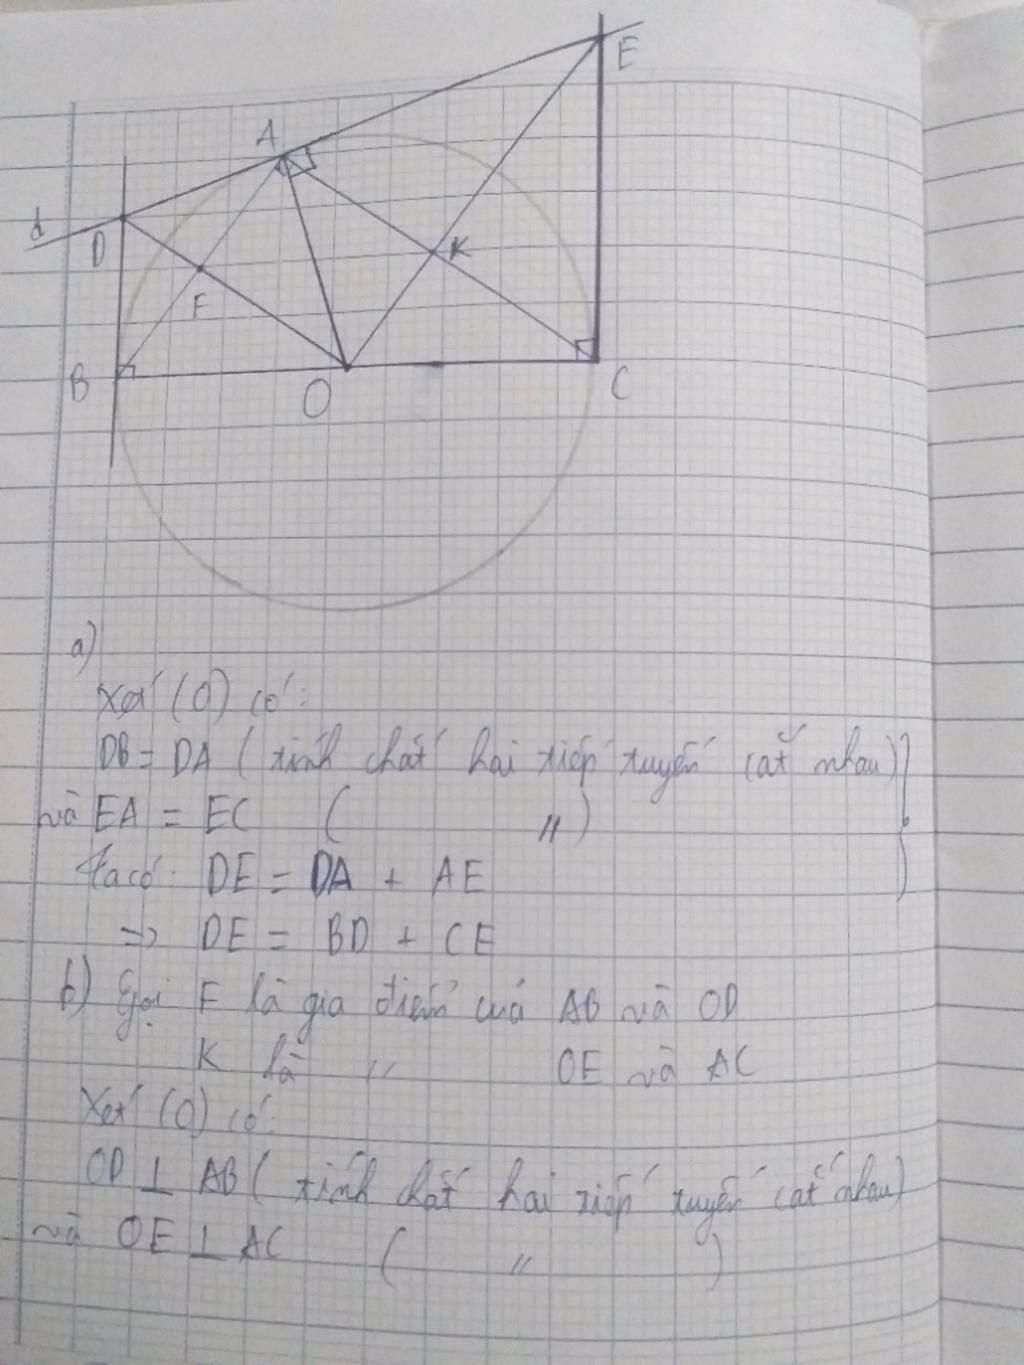 E
A
d
D
K
F
B
O
C
a)
Xét (O) có:
DB = DA ( tính chất hai tiếp tuyến cắt nhau)
và EA = EC ( " )
Ta có: DE = DA + AE
=> DE = BD + CE
b) Gọi F là gia điểm cuả AB và OD
K là " OE và AC
Xét (O) có:
OD ⊥ AB ( tính chất hai tiếp tuyến cắt nhau)
và OE ⊥ AC ( " )